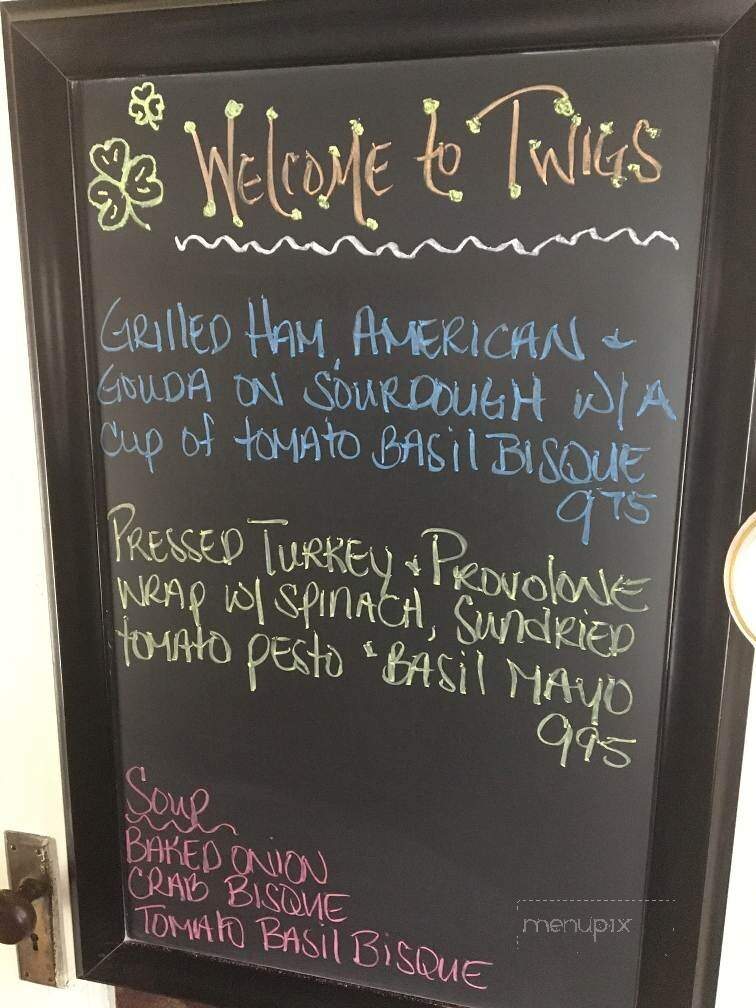 WELCOME to TWIGS
GRILLED HAM, AMERICAN &
GOUDA ON SOURDOUGH W/A
CUP of TOMATO BASIL BISQUE
975
PRESSED TURKEY & PROVOLONE
WRAP W/ SPINACH, SUNDRIED
TOMATO PESTO & BASIL MAYO
995
SOUP
BAKED ONION
CRAB BISQUE
TOMATO BASIL BISQUE
menupix